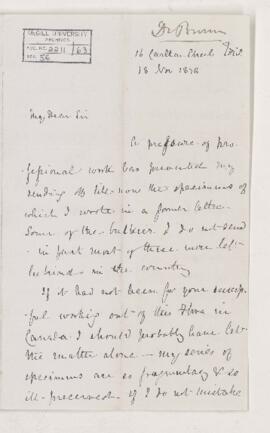 McGILL UNIVERSITY
ARCHIVES
ACC. NO. 2211 / 63
REF. 56
Dr Brown
16 Carlton Street
18 Nov 1878
My Dear Sir
A pressure of pro-
fessional work has prevented my
sending off till now the specimens of
which I wrote in a former letter.
Some of the I do not send
- in fact most of these were left
behind in the country
If it had not been for your
ful working out of this flora in
Canada I should probably have let
the matter alone - my series of
specimens are so fragmentary & so
ill-preserved. if I do not mistake